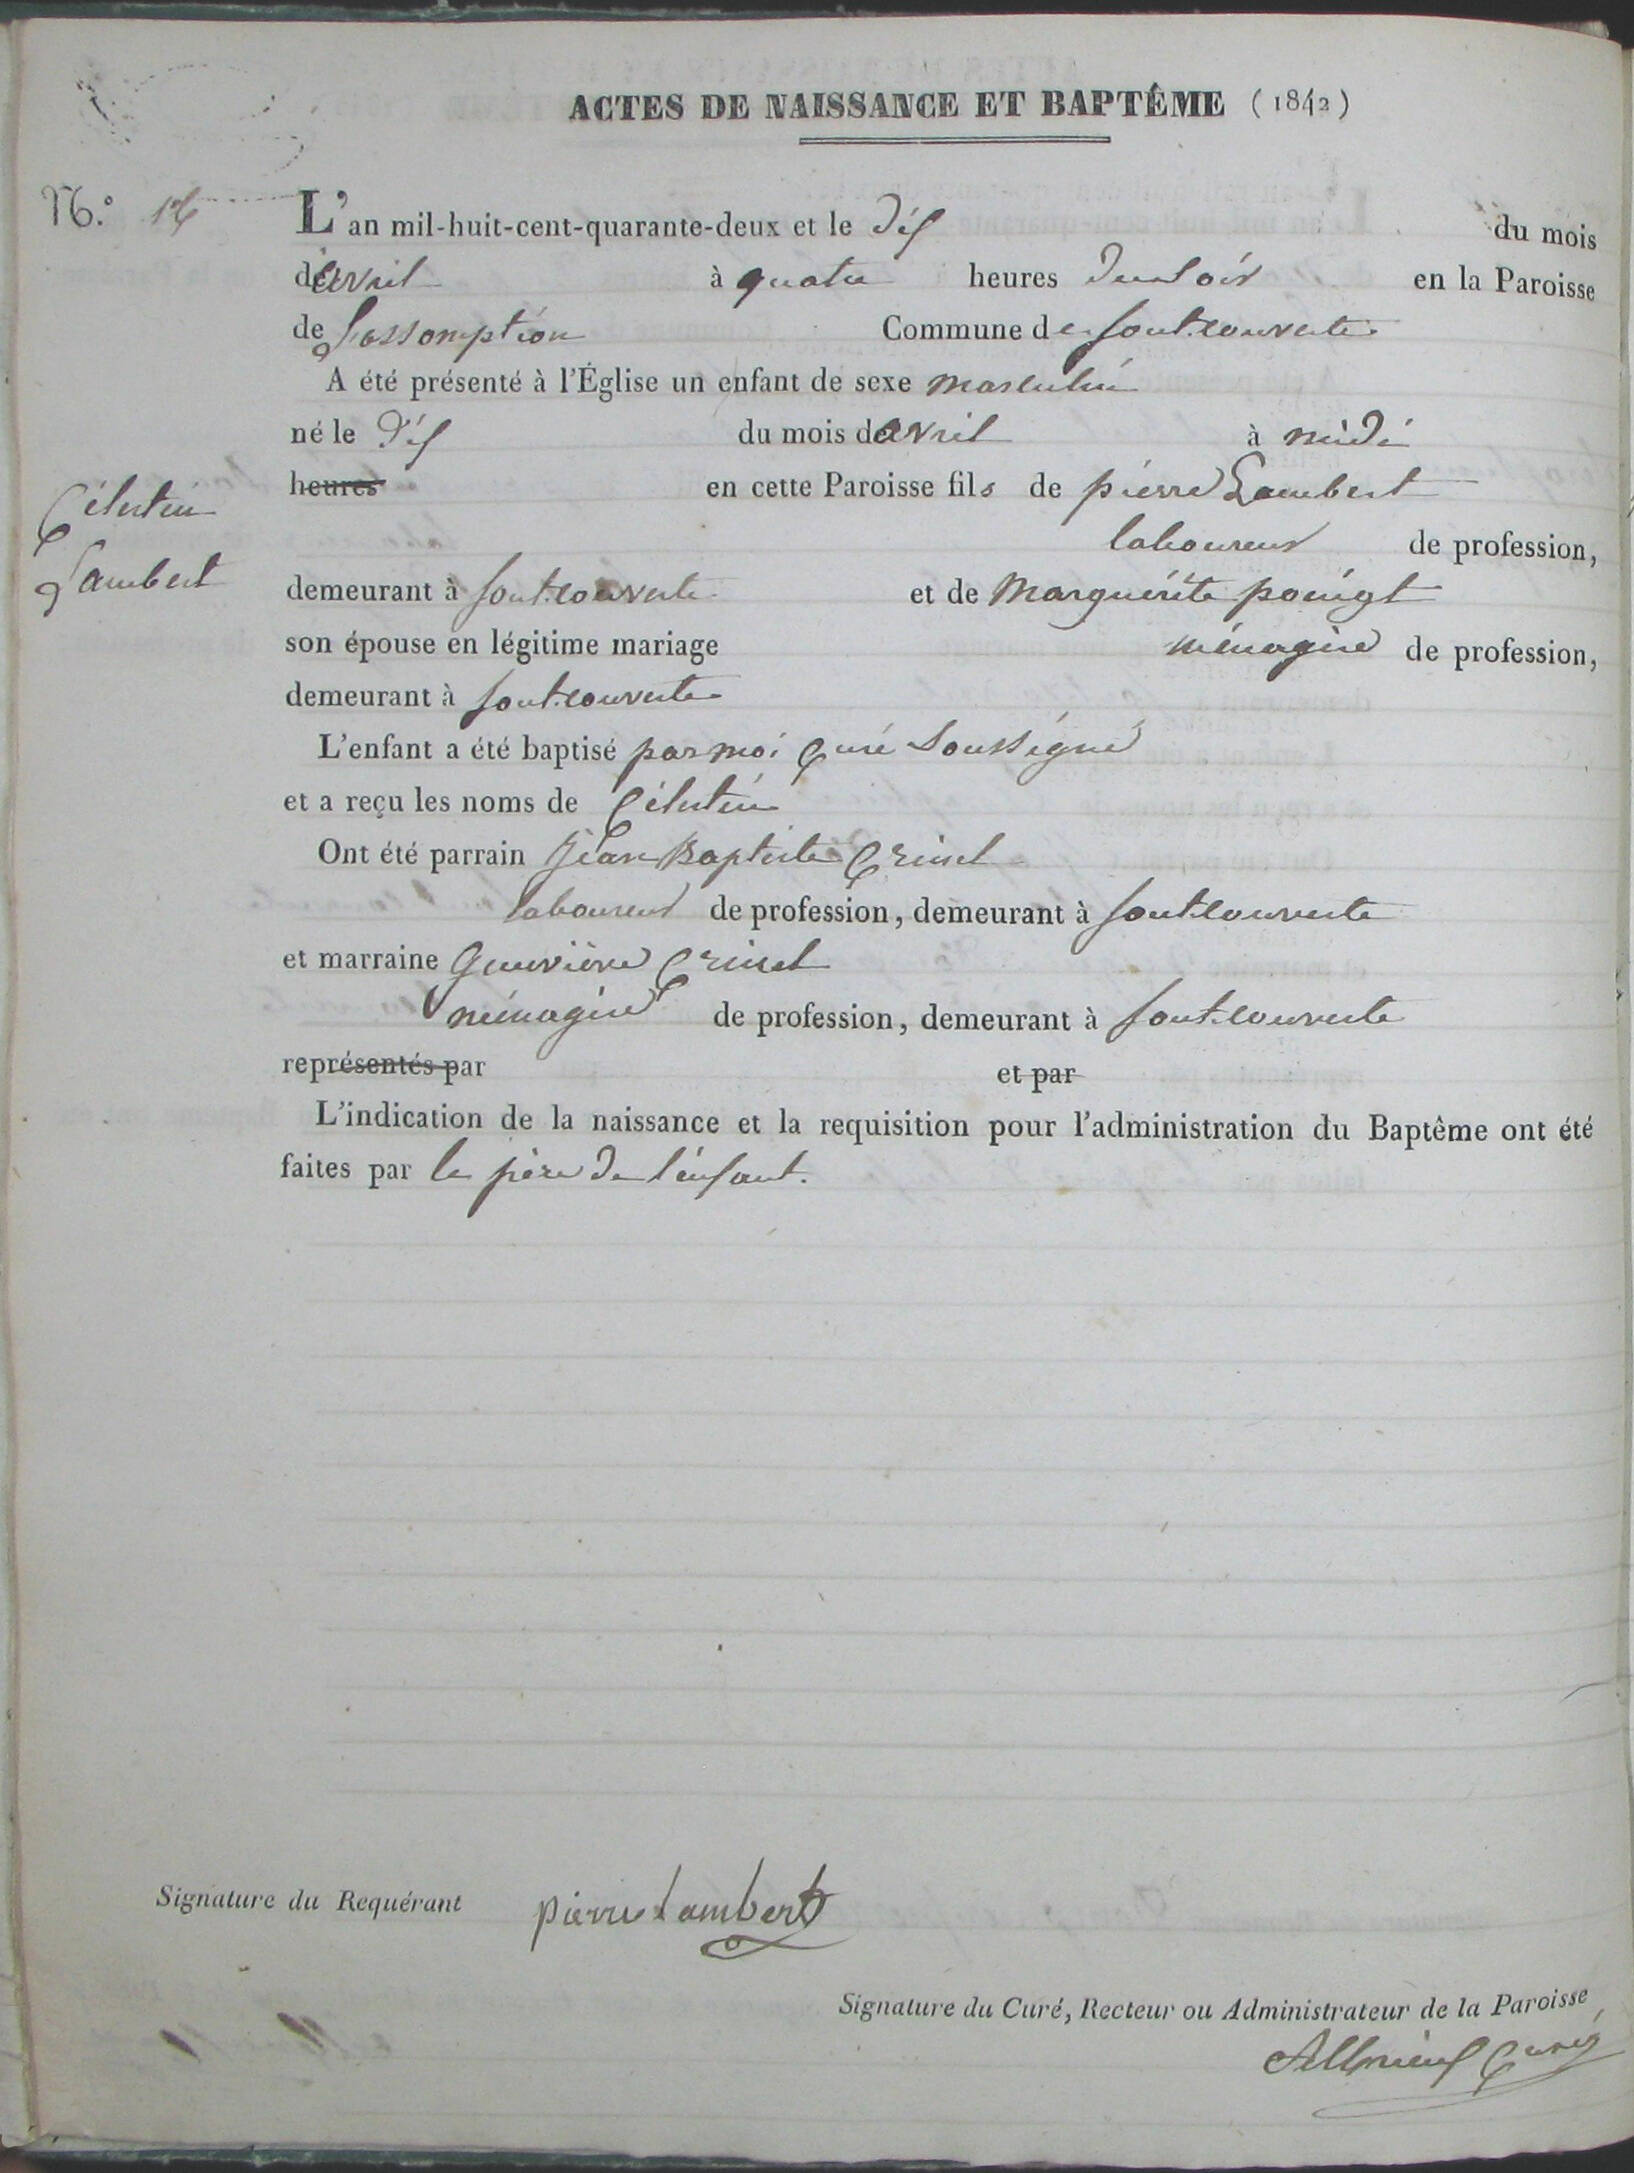 ACTES DE NAISSANCE ET BAPTÊME (1842)
N.º
L'an mil-huit-cent-quarante-deux et le dix du mois
d'avril à quatre heures du soir en la Paroisse
de l'assomption Commune de fontcouverte
A été présenté à l'Église un enfant de sexe masculin
né le dix du mois d'avril à midi
heures en cette Paroisse fils de pierre Lambert
laboureur de profession,
Célestin
Lambert
demeurant à fontcouverte et de Marguérite
son épouse en légitime mariage ménagère de profession,
demeurant à fontcouverte
L'enfant a été baptisé par moi Curé Soussigné
et a reçu les noms de Célestin
Ont été parrain Jean Baptiste
laboureur de profession, demeurant à fontcouverte
et marraine Geneviève
ménagère de profession, demeurant à fontcouverte
représentés par et par
L'indication de la naissance et la requisition pour l'administration du Baptême ont été
faites par le père de l'enfant.
Signature du Requérant pierre Lambert
Signature du Curé, Recteur ou Administrateur de la Paroisse
Curé